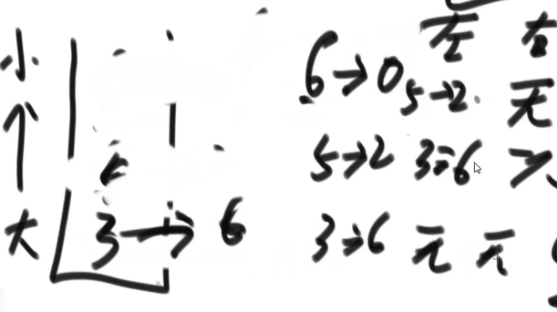 小
大
5
3→6
左 右
6→0 5→2 无
5→2 3→6
3→6 无 无